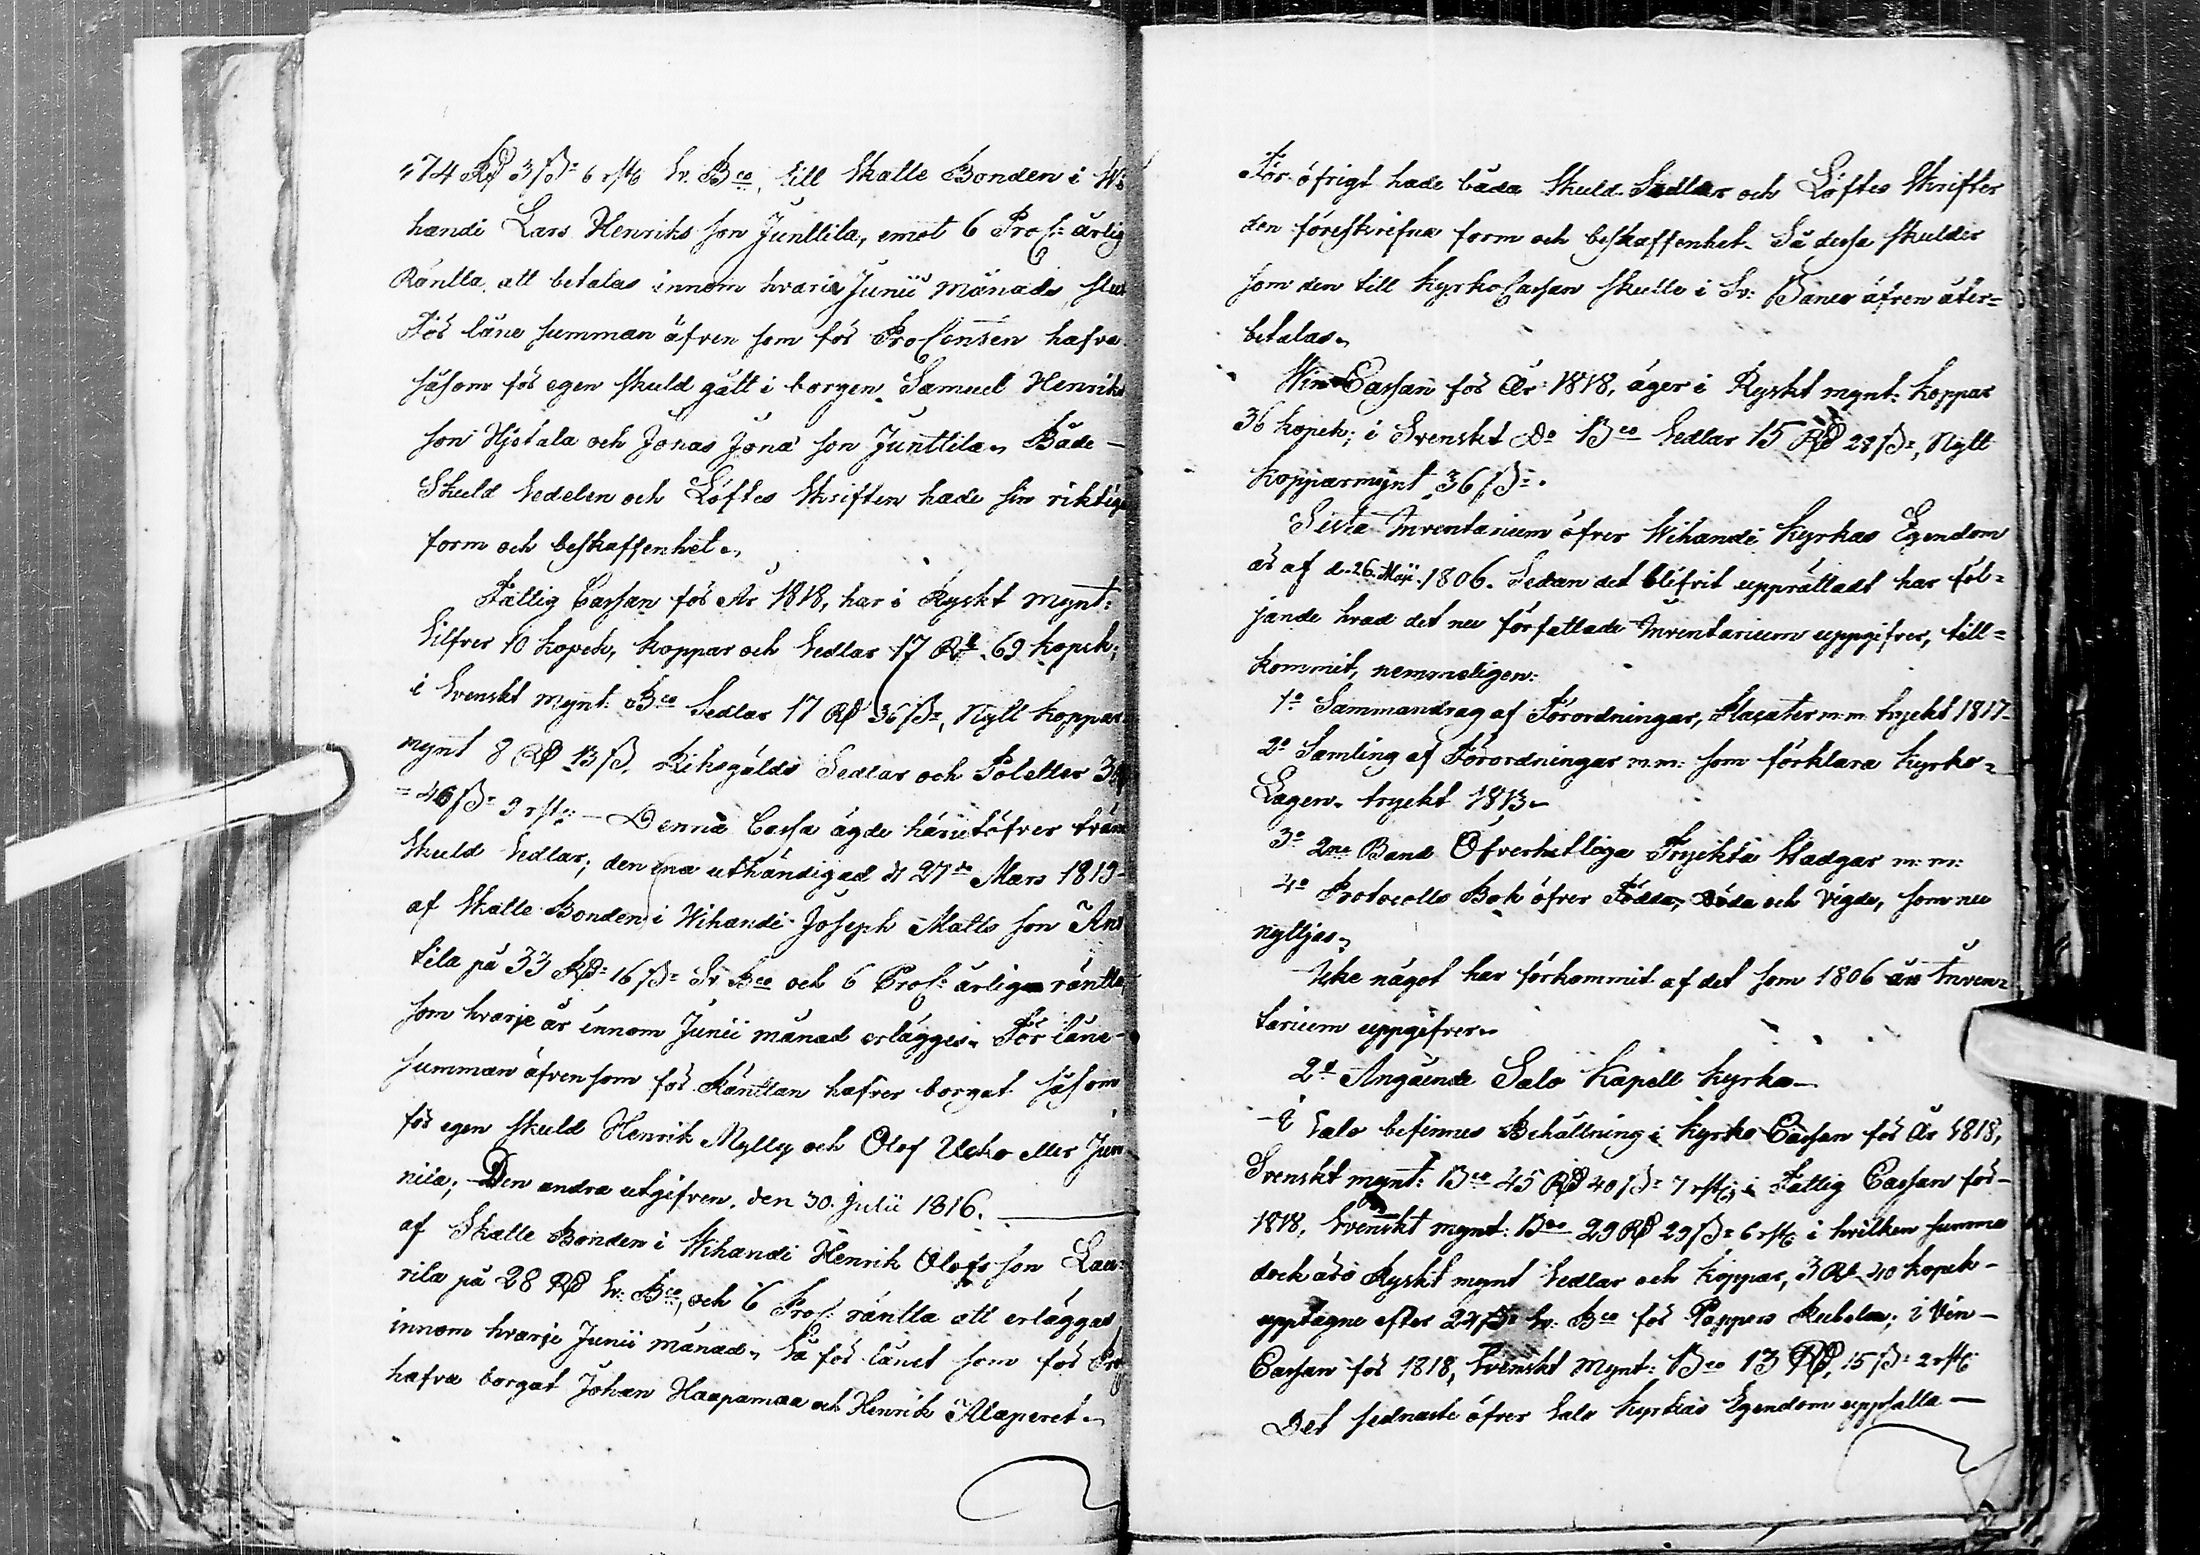 174 Rd 3 ß: 6 rst: Sv. Bco, till Skatte Bonden i Wi
handi Lars Henriks son Junttila, emot 6 ProC: årlig
Räntta att betalas innom hvarie Junii Månads slut
För låne summan äfven som för ProCenten hafva
såsom för egen skuld gått i borgen Samuel Henriks
son Hjetala och Jonas Jona son Junttila. Både
Skuld Sedelen och Löftes Skriften hade sin riktiga
form och beskaffenhet.
Fattig Cassan för År 1818, har i Ryskt Mynt:
Silfver 10 kopek, koppar och Sedlar 17 Rl. 69 kopek;
i Svenskt mynt: Bco Sedlar 17 Rd 36 ß:, Nytt koppar
mynt 8 Rd 13 ß, Riksgälds Sedlar och Poletter 3
= 46 ß: 9 rst: — Denna Cassa ägde härutöfver tvän
Skuld Sedlar; den ena uthändigad d 27de Mars 1819
af Skatte Bonden i Wihandi Joseph Matts son An
tila på 33 Rd: 16 ß: Sv Bco och 6 ProC: årligen räntta,
som hvarje år innom Junii månad erlägges. För låne-
summan äfvensom för Ränttan hafver borgat såsom
för egen skuld Henrik Mylly och Olof Ucko eller Jun
nila; Den andra utgifven. den 30. Julii 1816.
af Skatte Bonden i Wihandi Henrik Olofs son Lau-
rila på 28 Rd Sv: Bco, och 6 ProC: räntta att erläggas
innom hvarje Junii månad. Så för lånet som för Pro
hafva borgat Johan Haapamaa och Henrik Alaperet.
För öfrigt hade båda Skuld Sedlar och Löftes Skrifter
den föreskrifna form och beskaffenhet. Så dessa skulder
som den till KyrkoCassan skulle i Sv: Banco äfven åter=
betalas.
Win Cassan för År 1818, äger i Ryskt mynt: koppar
36 kopek; i Svenskt Do Bco Sedlar 15 Rd 28 ß:, Nytt
kopparmynt 36 ß:.
Sista Inventarium öfver Wihandi Kyrkas Egendom
är af d. 26. Maji. 1806. Sedan det blifvit upprättadt har föl=
jande hvad det nu författade Inventarium uppgifver, till=
kommit, nemmeligen:
1o Sammandrag af Förordningar, Placater m.m. tryckt 1817
2o Samling af Förordningar m.m: som förklara Kyrko=
Lagen. tryckt 1813.
3o 2ne Band Öfverhetliga Tryckta Stadgar m: m:
4o Protocolls Bok öfver Födda, Döda och Vigde, som nu
nyttjas.
Icke något har förkommit af det som 1806 års Inven=
tarium uppgifver.
2o Angående Salo Kapell Kyrka —
I Salo befinnes Behållning i Kyrko Cassan för År 1818,
Svenskt mynt: Bco 45 Rd 40 ß: 7 rst; i Fattig Cassan för
1818, Svenskt mynt: Bco 29 Rd 29 ß: 6 rst i hvilken summa
dock äro Ryskt mynt Sedlar och koppar, 3 Rl 40 kopek
upptagne efter 24 ß: Sv: Bco för Pappers Rubeln; i Vin
Cassan för 1818, Svenskt Mynt: Bco 13 Rd, 15 ß: 2 rst:
Det sednaste öfver Salo Kyrkas Egendom uppsatta —